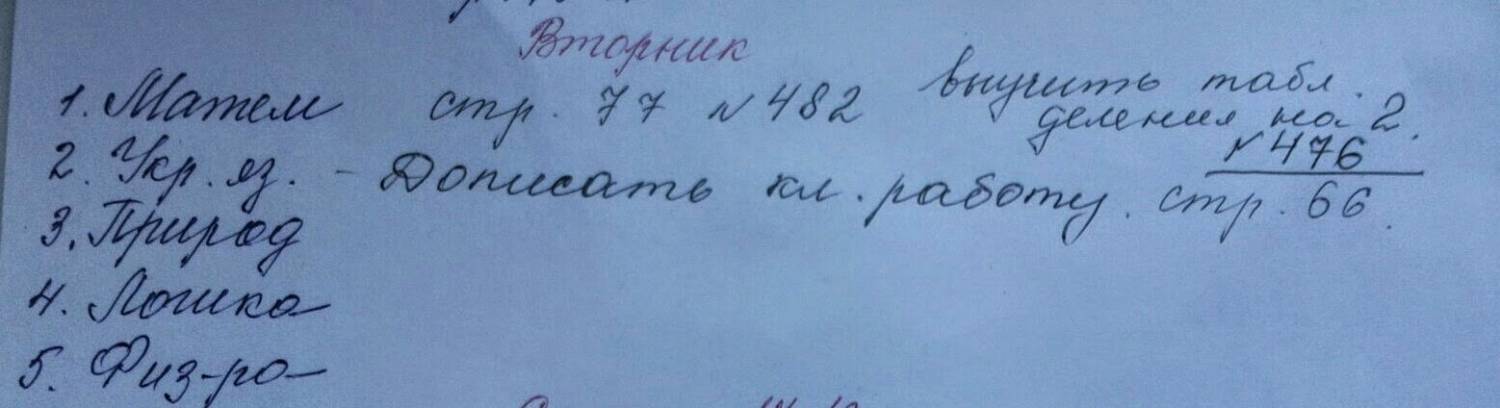 Вторник
1. Матем стр. 77 №482 выучить табл.
деления на 2.
№476
2. Укр. яз. - Дописать кл. работу. стр. 66.
3. Природ
4. Логика
5. Физ-ра